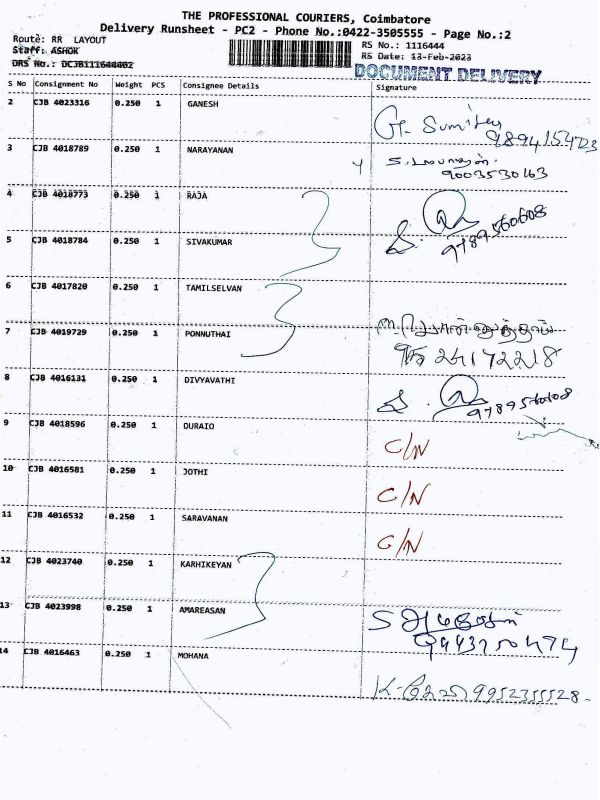 THE PROFESSIONAL COURIERS, Coimbatore
Delivery Runsheet - PC2 - Phone No.:0422-3505555 - Page No.:2
Route: RR LAYOUT
RS No.: 1116444
Staff: ASHOK
RS Date: 13-Feb-2023
DRS No.: DCJB111644402
DOCUMENT DELIVERY
S No Consignment No Weight PCS Consignee Details Signature
2 CJB 4023316 0.250 1 GANESH
9894154723
3 CJB 4018789 0.250 1 NARAYANAN
9003530163
4 CJB 4018773 0.250 1 RAJA
9789560608
5 CJB 4018784 0.250 1 SIVAKUMAR
6 CJB 4017820 0.250 1 TAMILSELVAN
7 CJB 4019729 0.250 1 PONNUTHAI
8 CJB 4016131 0.250 1 DIVYAVATHI
9789560608
9 CJB 4018596 0.250 1 DURAIO
C/N
10 CJB 4016581 0.250 1 JOTHI
C/N
11 CJB 4016532 0.250 1 SARAVANAN
C/N
12 CJB 4023740 0.250 1 KARHIKEYAN
13 CJB 4023998 0.250 1 AMAREASAN
9443750474
14 CJB 4016463 0.250 1 MOHANA
9952355528